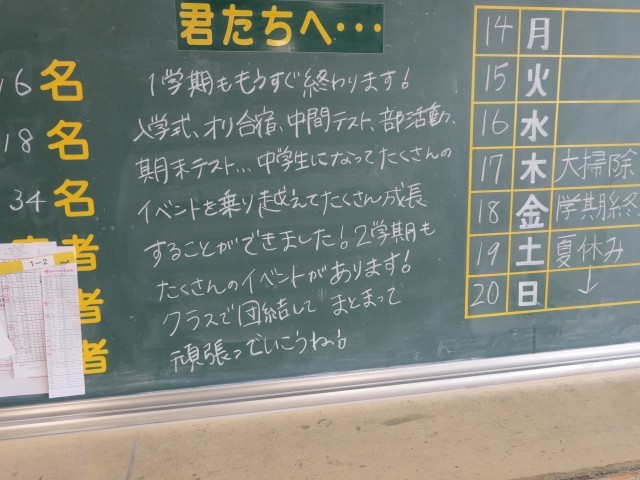 君たちへ・・・
16名
18名
34名
者
者
者
1-2
1学期ももうすぐ終わります!
入学式、オリ合宿、中間テスト、部活動、
期末テスト…中学生になってたくさんの
イベントを乗り越えてたくさん成長
することができました!2学期も
たくさんのイベントがあります!
クラスで団結して まとまって
頑張っていこうね!
14 月
15 火
16 水
17 木 大掃除
18 金 学期終
19 土 夏休み
20 日 ↓